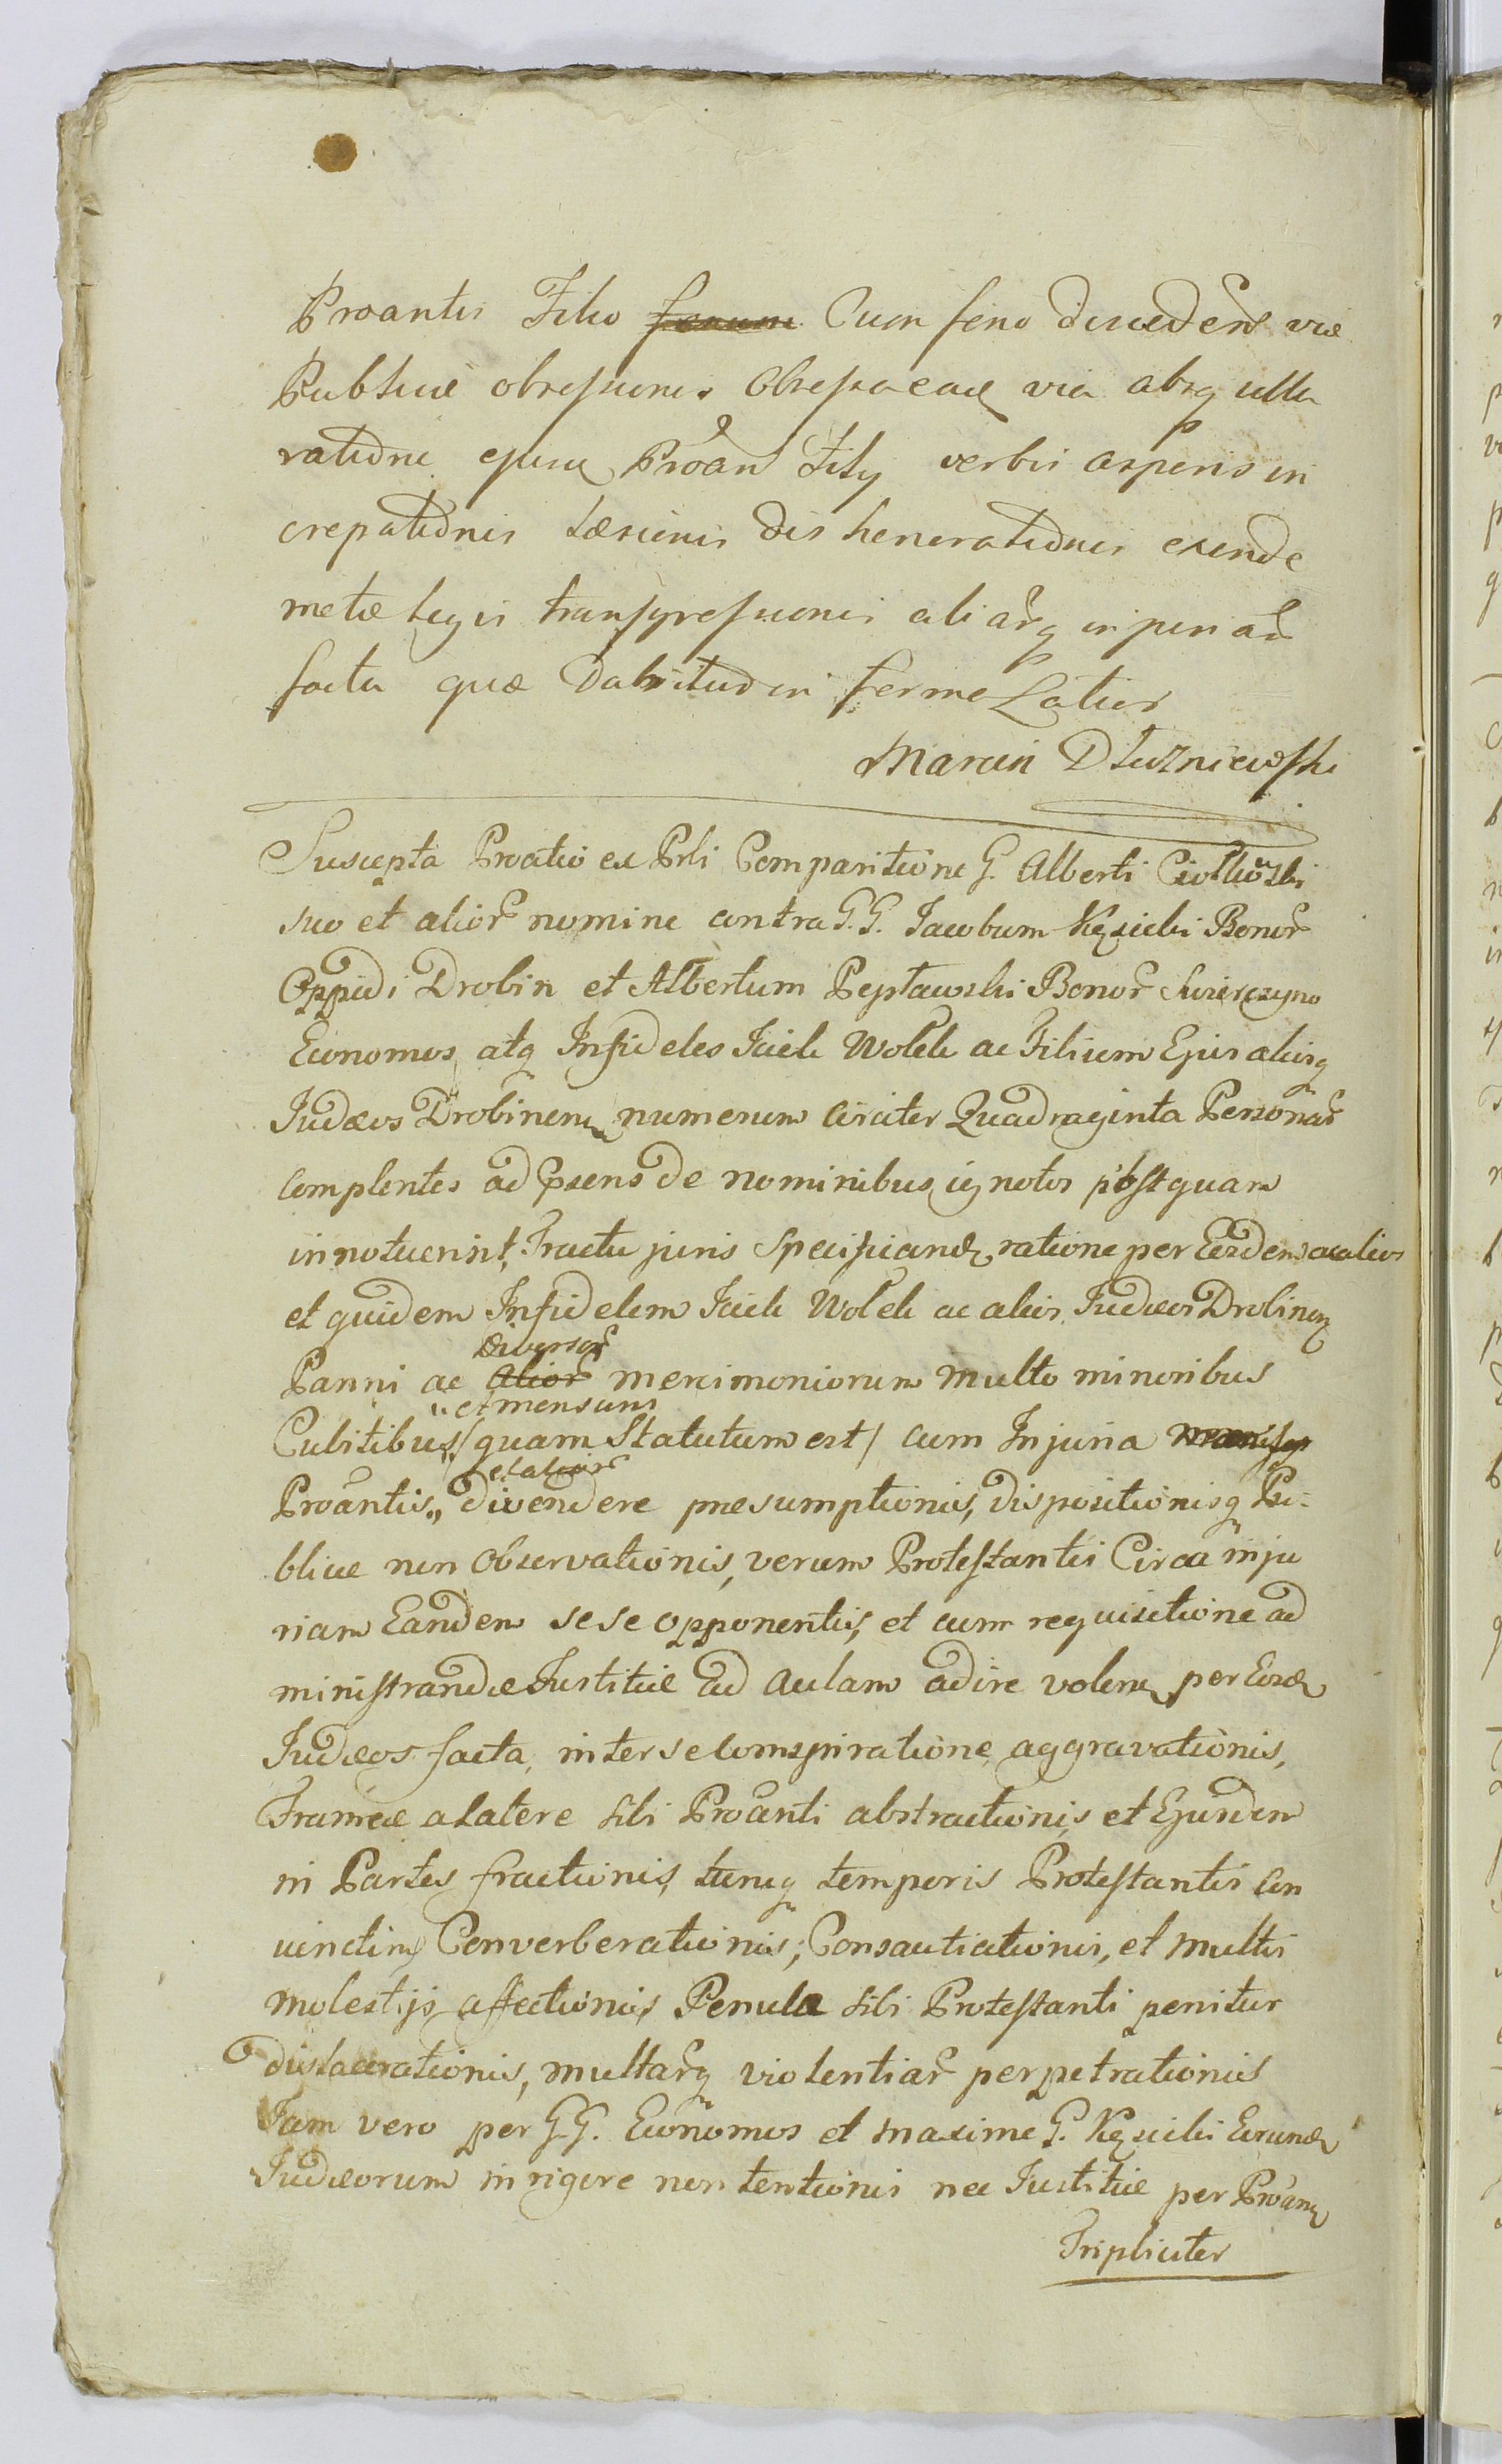 Proantis Filio fenum Cum feno discedent viæ
Publicæ obsessionis via absq ulla
ratione ejusq Proan Filij verbis asperis in
crepationis Læsionis dis henorationis exinde
metæ Legis transgressionis aliarq in
facta quæ Dabitud in ferme Latior
Marcin Dłuzniewski
Suscepta Proatio ex Prli Comparitione G. Alberti Ciołkowski
suo et alior nomine contra G. G. Jacobum Kęsicki Bonor
Oppidi Drobin et Albertum Peptawski Bonor Swierczyno
Economos, atq Infideles Icick Wolek ac Filium Ejus aliosq
Judæos Drobinenses numerum circiter Quadraginta Personar
complentes ad Præsens de nominibus ignotos postquam
innotuerint, Tractu juris Specificand ratione per Eosdem ac alios
et quidem Infidelem Icick Wolek ac alios Judæos Drobinen
diversor
Panni ac alior mercimoniorum multo minoribus
et mensuris
Cubitibus /quam Statutum est/ cum Injuria
et alior
Proantis,, divendere præsumptionis, dispositionisq Pu-
blicæ non Observationis, verum Protestantis Circa inju
riam Eandem sese opponentis, et cum requisitione ad
ministrandæ Justitiæ ad Aulam adire volen, per Eosd
Judæos facta, inter se Comspiratione, aggravationis,
Frameæ a Latere sibi Proanti abstractionis et Ejusdem
in Partes fractionis, tunq temporis Protestantis Con
vinctim Converberationis, Consauciationis, et multis
molestijs affectionis, Penula sibi Protestanti penitus
dislacerationis, multarq violentiar perpetrationis
Jam vero per G.G. Economos et maxime G. Kęsicki Eorund
Judæorum in rigore non tentionis nec Justitiæ per Proan
Tripliciter